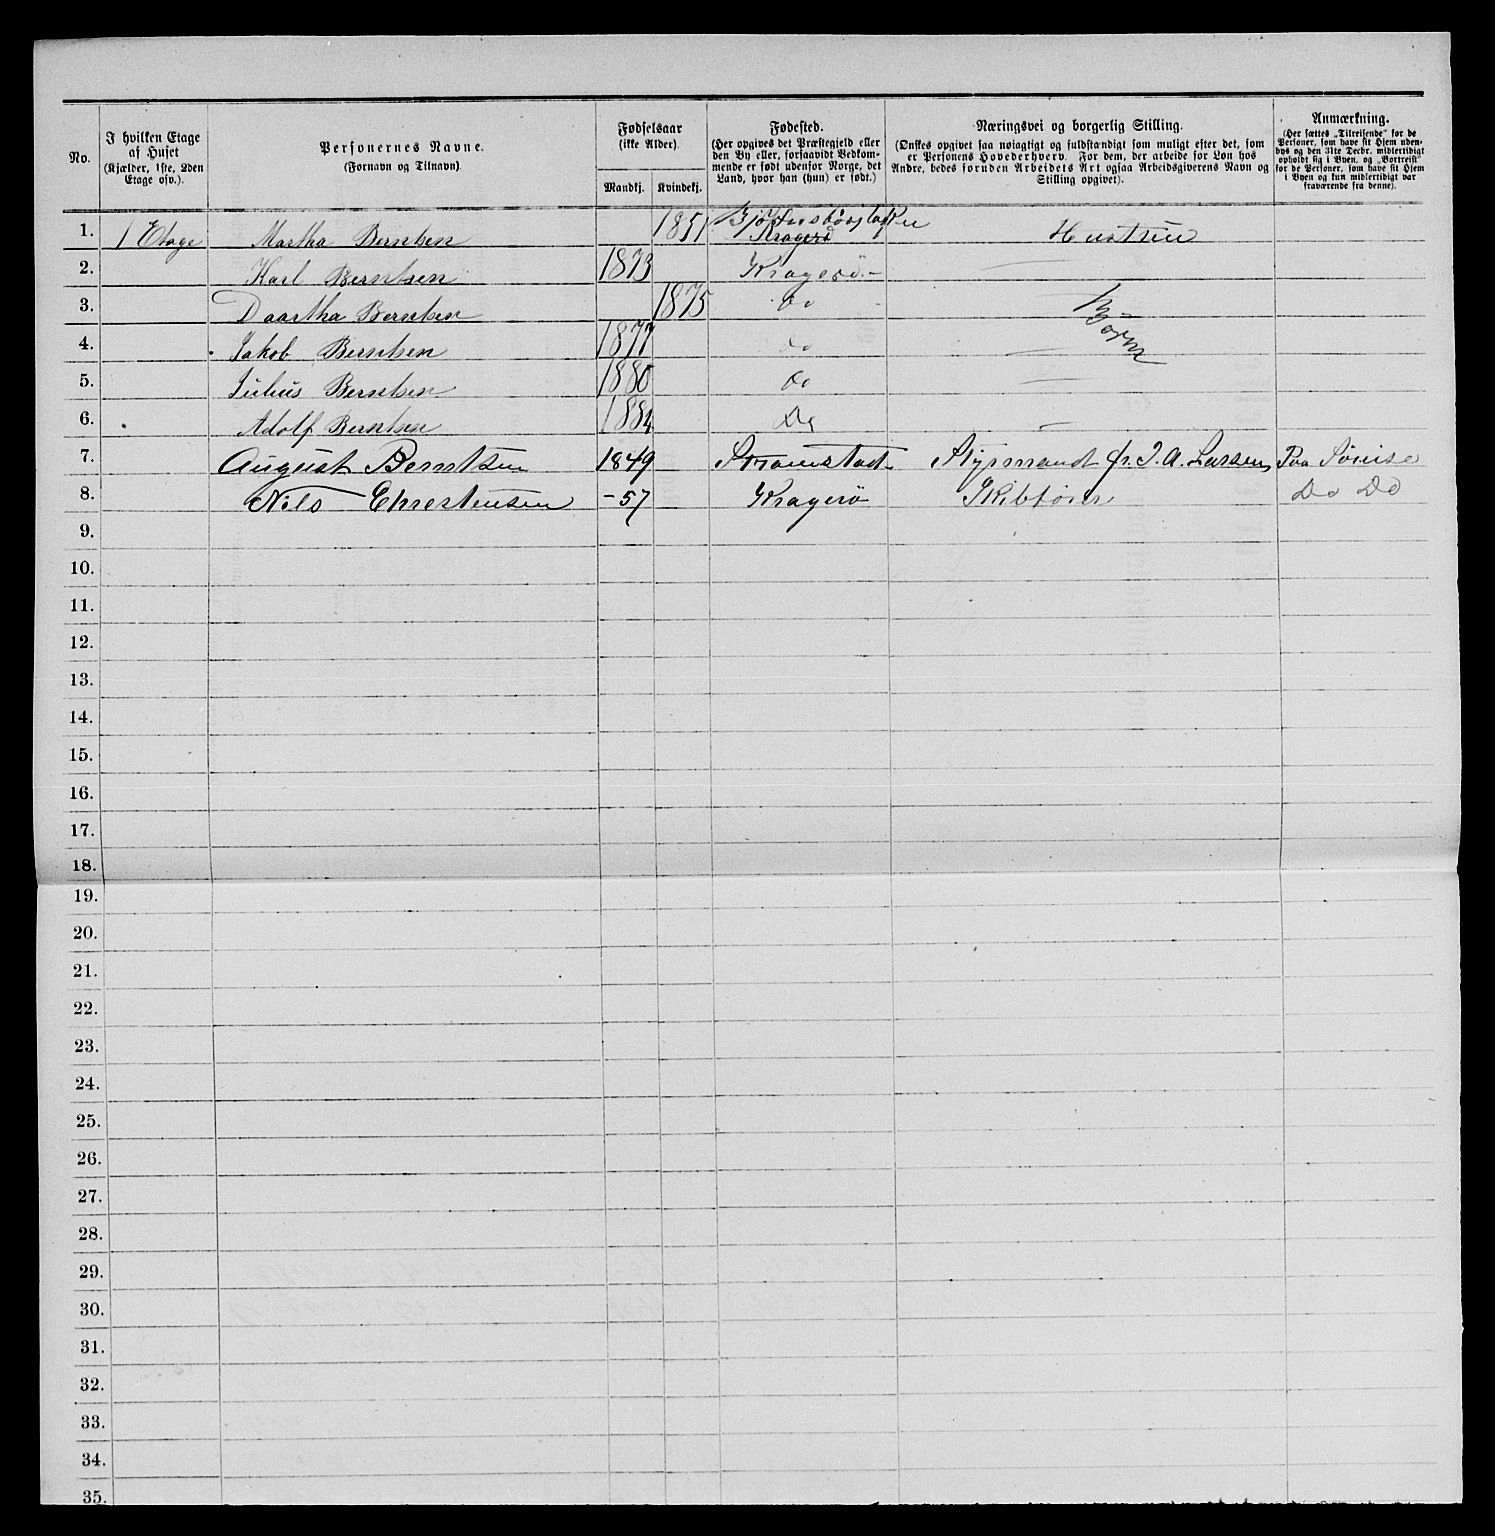 No.
I hvilken Etage af Huset
(Kjælder, 1ste, 2den Etage osv.).
Personernes Navne.
(Fornavn og Tilnavn)
Fødselsaar
(ikke Alder).
Mandkj. Kvindekj.
Fødested.
(Her opgives det Præstegjeld eller
den By eller, forsaavidt Vedkom-
mende er født udenfor Norge, det
Land, hvor han (hun) er født.)
Næringsvei og borgerlig Stilling.
(Ønskes opgivet saa nøiagtigt og fuldstændigt som muligt efter det, som
er Personens Hovederhverv. For dem, der arbeide for Løn hos
Andre, bedes foruden Arbeidets Art ogsaa Arbeidsgiverens Navn og
Stilling opgivet).
Anmærkning.
(Her sættes „Tilreisende" for de
Personer, som have sit Hjem uden-
bys og den 31te Decbr. midlertidigt
opholdt sig i Byen, og „Bortreist"
for de Personer, som have sit Hjem
i Byen og kun midlertidigt var
fraværende fra denne).
1. 1 Etage Martha Berntsen 1851 Kragerø Hustru
2. Karl Berntsen 1873 Kragerø –
3. Daartha Berntsen 1875 do Børn
4. Jakob Berntsen 1877 do
5. Julius Berntsen 1880 do
6. Adolf Berntsen 1884 Do
7. August Berntsen 1849 Strømstad Styrmand fr. J. A. Larsen Paa
8. Nils Christensen – 57 Kragerø Do Do
9.
10.
11.
12.
13.
14.
15.
16.
17.
18.
19.
20.
21.
22.
23.
24.
25.
26.
27.
28.
29.
30.
31.
32.
33.
34.
35.